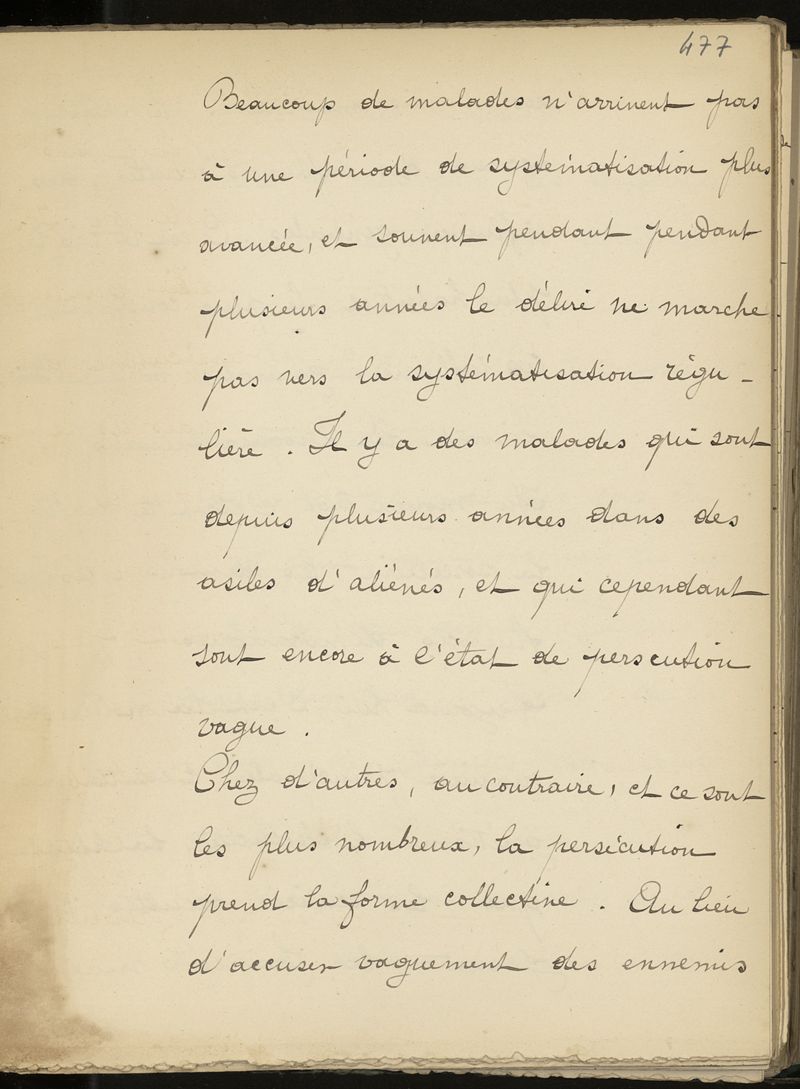 477
Beaucoup de malades n'arrivent pas
à une période de systématisation plus
avancée, et souvent pendant pendant
plusieurs années le délire ne marche
pas vers la systématisation régu-
lière. Il y a des malades qui sont
depuis plusieurs années dans des
asiles d'aliénés, et qui cependant
sont encore à l'état de perscution
vague.
Chez d'autres, au contraire, et ce sont
les plus nombreux, la persécution
prend la forme collective. Au lieu
d'accuser vaguement des ennemis